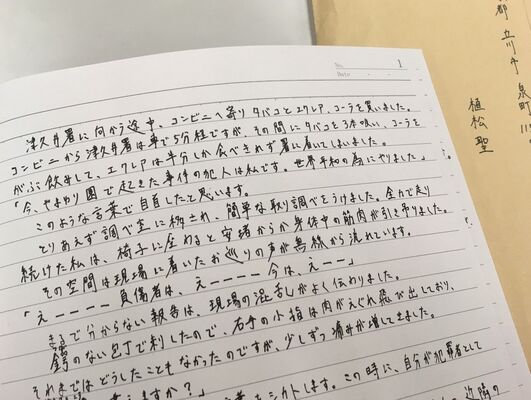 都 立川市 泉町 11
植松聖
No. 1
Date
津久井署に向かう途中、コンビニへ寄りタバコとエクレア、コーラを買いました。
コンビニから津久井署は車で5分程ですが、その間にタバコを3本吸い、コーラを
がぶ飲みして、エクレアは半分しか食べきれず署に着いてしまいました。
「今、やまゆり園で起きた事件の犯人は私です。世界平和の為にやりました」
このような言葉で自首したと思います。
とりあえず調べ室に移され、簡単な取り調べをうけました。全力で走り
続けた私は、椅子に座わると安堵からか身体中の筋肉が引き吊りました。
その空間は現場に着いたお巡りの声が無線から流れています。
「えーーーー 負傷者は、えーーーー 今は、えーー」
まるで分からない報告は、現場の混乱がよく伝わりました。
鍔のない包丁で刺したので、右手の小指は肉がえぐれ飛び出しており、
それまではどうしたこともなかったのですが、少しずつ痛みが増してきました。
ますか?」
シカトします。この時に、自分が犯罪者として
近隣の